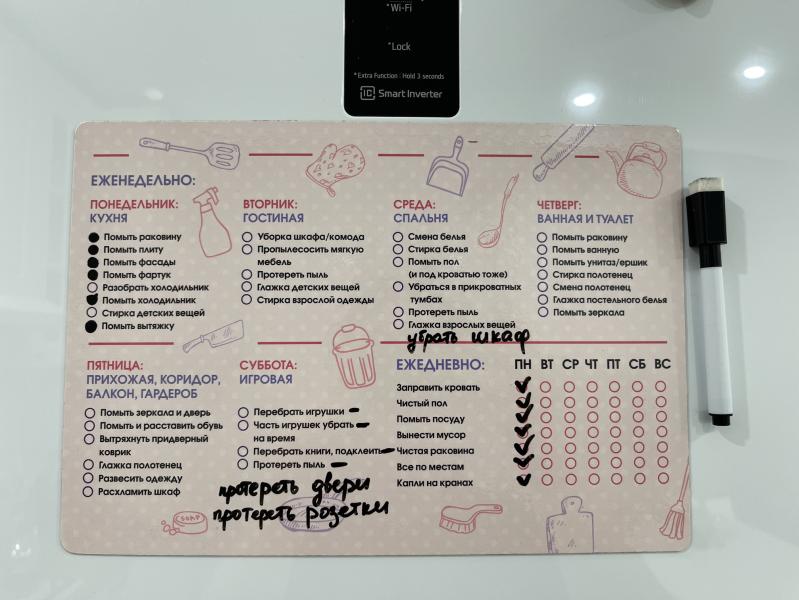 *Wi-Fi
*Lock
*Extra Function : Hold 3 seconds
Smart Inverter
ЕЖЕНЕДЕЛЬНО:
ПОНЕДЕЛЬНИК:
КУХНЯ
Помыть раковину
Помыть плиту
Помыть фасады
Помыть фартук
Разобрать холодильник
Помыть холодильник
Стирка детских вещей
Помыть вытяжку
ВТОРНИК:
ГОСТИНАЯ
Уборка шкафа/комода
Пропылесосить мягкую
мебель
Протереть пыль
Глажка детских вещей
Стирка взрослой одежды
СРЕДА:
СПАЛЬНЯ
Смена белья
Стирка белья
Помыть пол
(и под кроватью тоже)
Убраться в прикроватных
тумбах
Протереть пыль
Глажка взрослых вещей
убрать шкаф
ЧЕТВЕРГ:
ВАННАЯ И ТУАЛЕТ
Помыть раковину
Помыть ванную
Помыть унитаз/ершик
Стирка полотенец
Смена полотенец
Глажка постельного белья
Помыть зеркала
ПЯТНИЦА:
ПРИХОЖАЯ, КОРИДОР,
БАЛКОН, ГАРДЕРОБ
Помыть зеркала и дверь
Помыть и расставить обувь
Вытряхнуть придверный
коврик
Глажка полотенец
Развесить одежду
Расхламить шкаф
СУББОТА:
ИГРОВАЯ
Перебрать игрушки
Часть игрушек убрать
на время
Перебрать книги, подклеить
Протереть пыль
протереть двери
протереть розетки
ЕЖЕДНЕВНО: ПН ВТ СР ЧТ ПТ СБ ВС
Заправить кровать
Чистый пол
Помыть посуду
Вынести мусор
Чистая раковина
Все по местам
Капли на кранах
SOAP